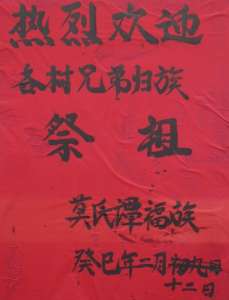 热烈欢迎
各村兄弟归族
祭祖
莫氏谭福族
癸巳年二月初九日
十二日